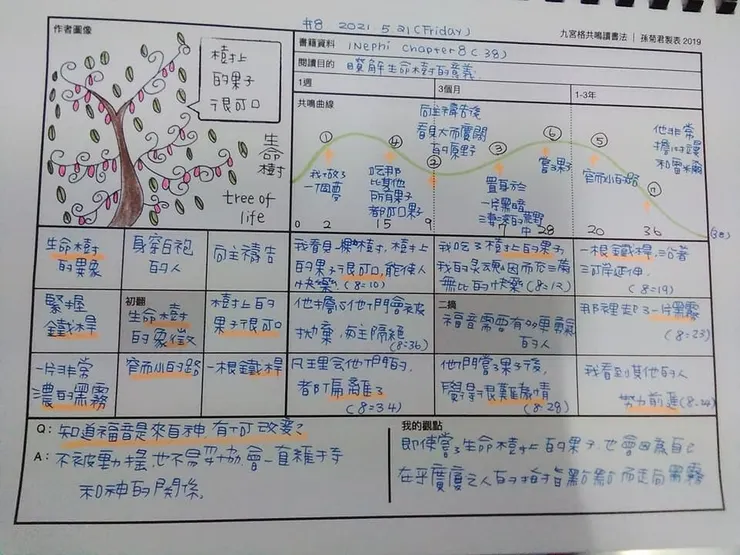 #8 2021 5 21(Friday)
九宮格共鳴讀書法｜孫菊君製表 2019
作者圖像
樹上
的果子
很可口
生命
樹
tree of
life
書籍資料 1Nephi chapter8(38)
閱讀目的 瞭解生命樹的意義
1週
3個月
1-3年
共鳴曲線
① ④ ② ③ ⑥ ⑤ ⑦
我做了
一個夢
吃那
比其他
所有果子
都可口果子
向主禱告後
看見大而廣闊
的原野
置身於
一片黑暗
荒野
中
嘗了果子
窄而小的路
他非常
擔心拉曼
和雷米爾
0 2 15 9 7 28 20 36
生命樹
的異象
身穿白袍
的人
向主禱告
緊握
鐵桿
初翻
生命樹
的象徵
樹上的
果子很可口
一片非常
濃的黑霧
窄而小的路
一根鐵桿
我看見一棵樹，樹上
的果子很可口，能使人
快樂。(8=10)
我吃了樹上的果子
我的靈魂因而充滿
無比的快樂 (8=12)
一根鐵桿，沿著
河岸延伸。
(8=19)
他擔心他們會被
拋棄，與主隔絕
(8=36)
二摘
福音需要有
的人
那裡起了一片黑霧
(8=23)
凡理會他們的，
都偏離了
(8=34)
他們嘗了果子後，
覺得很難為情
(8=28)
我看到其他的人
努力前進(8=24)
Q: 知道福音是來自神，有何改變？
A: 不被動搖，也不易妥協，會一直維持
和神的關係。
我的觀點
即使嘗了生命樹上的果子，也會因為自己
在乎廣廈之人的指指點點而走向黑霧